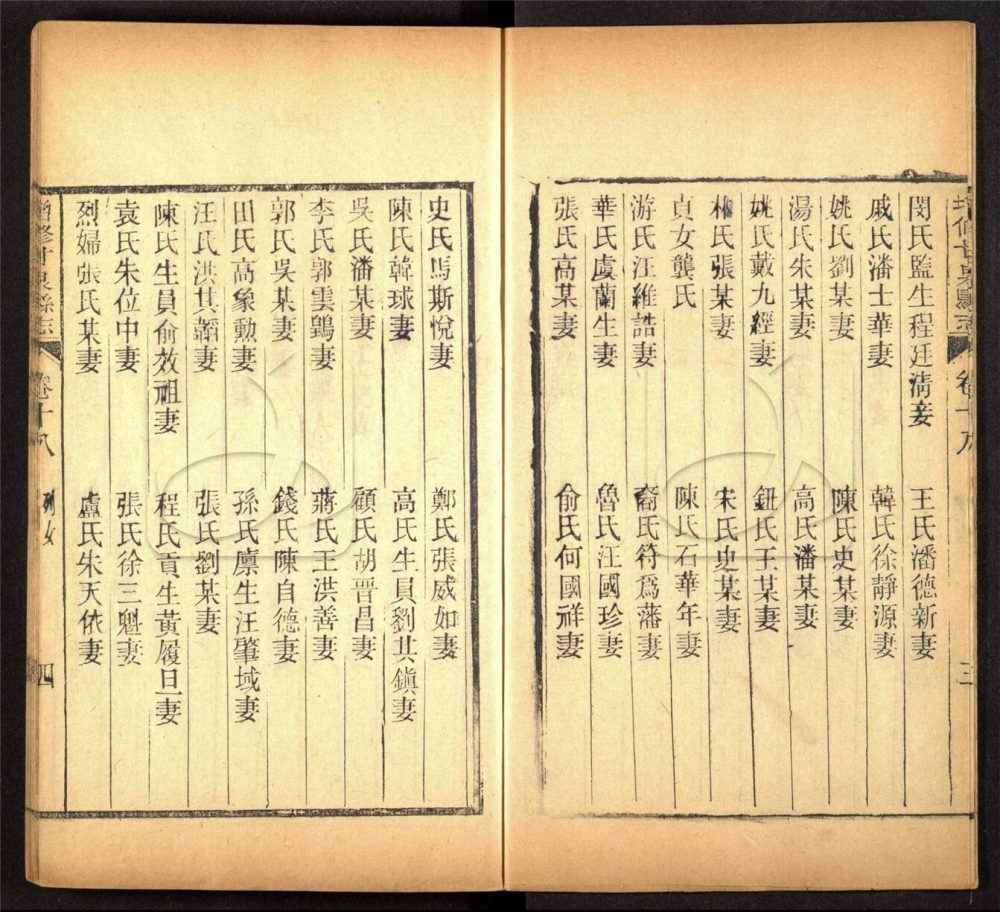 增修甘泉縣志 卷十八 三
閔氏監生程廷淸妾 王氏潘德新妻
戚氏潘士華妻 韓氏徐靜源妻
姚氏劉某妻 陳氏史某妻
湯氏朱某妻 高氏潘某妻
姚氏戴九經妻 鈕氏王某妻
林氏張某妻 宋氏史某妻
貞女龔氏 陳氏石華年妻
游氏汪維誥妻 裔氏符爲藩妻
華氏虞蘭生妻 魯氏汪國珍妻
張氏高某妻 俞氏何國祥妻
史氏馬斯悅妻 鄭氏張威如妻
陳氏韓球妻 高氏生員劉其鎭妻
吳氏潘某妻 顧氏胡晉昌妻
李氏郭雲鶚妻 蔣氏王洪善妻
郭氏吳某妻 錢氏陳自德妻
田氏高象勳妻 孫氏廩生汪肇域妻
汪氏洪其韜妻 張氏劉某妻
陳氏生員俞效祖妻 程氏貢生黃履旦妻
袁氏朱位中妻 張氏徐三魁妻
烈婦張氏某妻 盧氏朱天依妻
增修甘泉縣志 卷十八 列女 四